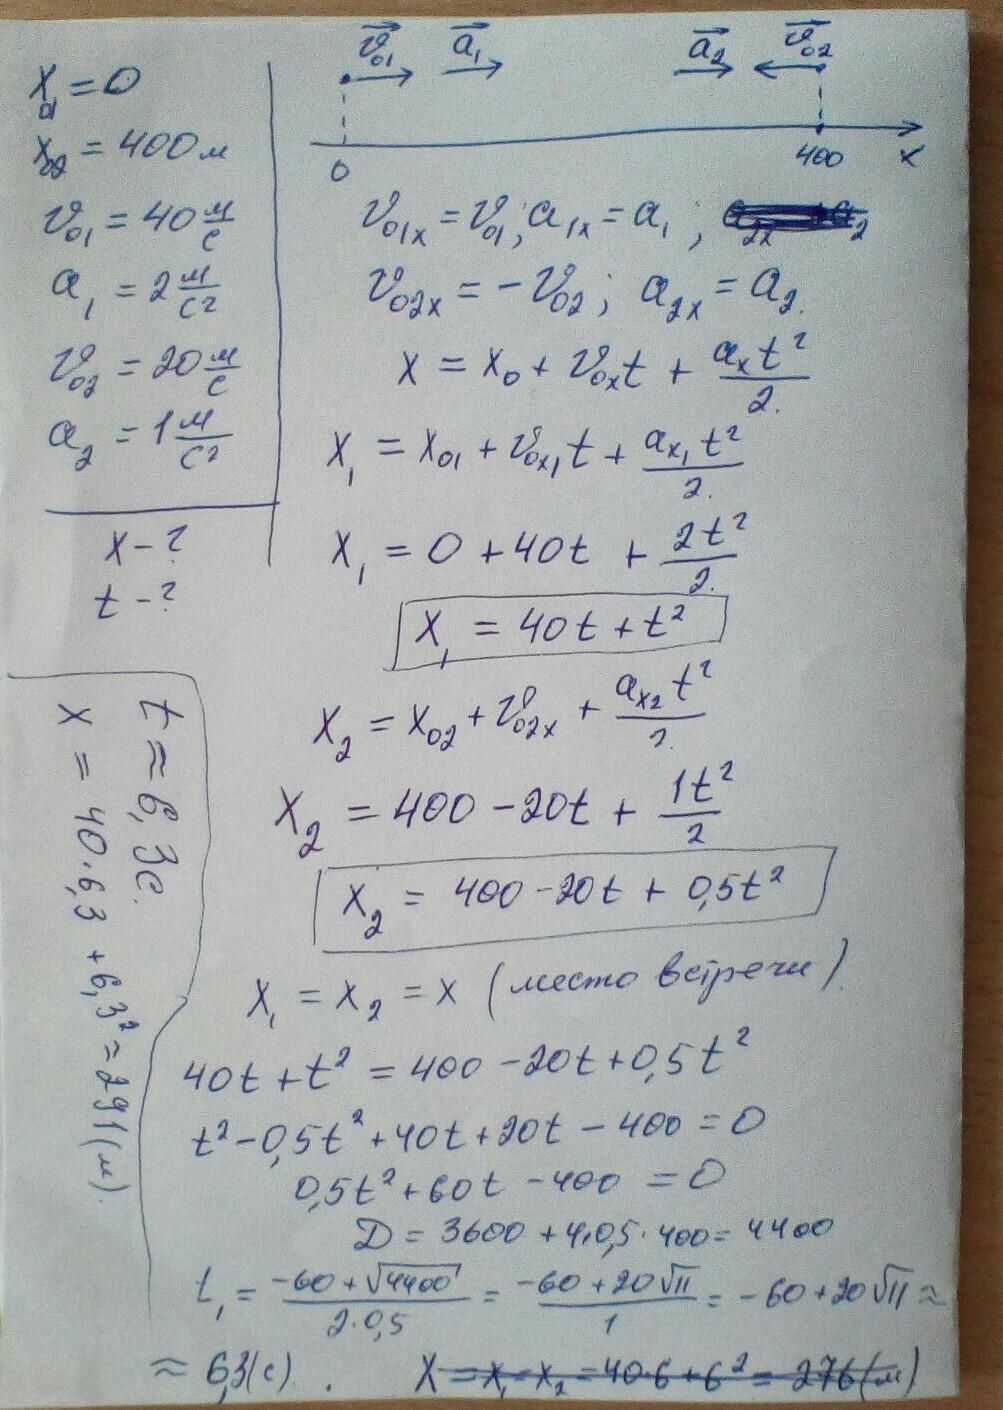 x₀₁ = 0
x₀₂ = 400 м
v₀₁ = 40 м/с
a₁ = 2 м/с²
v₀₂ = 20 м/с
a₂ = 1 м/с²
x - ?
t - ?
v⃗₀₁ a⃗₁ a⃗₂ v⃗₀₂
0 400 x
v₀₁ₓ = v₀₁; a₁ₓ = a₁;
v₀₂ₓ = -v₀₂; a₂ₓ = a₂.
x = x₀ + v₀ₓt + aₓt²/2.
x₁ = x₀₁ + v₀ₓ₁t + aₓ₁t²/2.
x₁ = 0 + 40t + 2t²/2.
x₁ = 40t + t²
x₂ = x₀₂ + v₀₂ₓ + aₓ₂t²/2.
x₂ = 400 - 20t + 1t²/2
x₂ = 400 - 20t + 0,5t²
x₁ = x₂ = x (место встречи).
40t + t² = 400 - 20t + 0,5t²
t² - 0,5t² + 40t + 20t - 400 = 0
0,5t² + 60t - 400 = 0
D = 3600 + 4·0,5·400 = 4400
t₁ = (-60 + √4400)/(2·0,5) = (-60 + 20√11)/1 = -60 + 20√11 ≈
≈ 6,3(с).
x = x₁ = x₂ = 40·6 + 6² = 276(м)
t ≈ 6,3с.
x = 40·6,3 + 6,3² = 291(м).